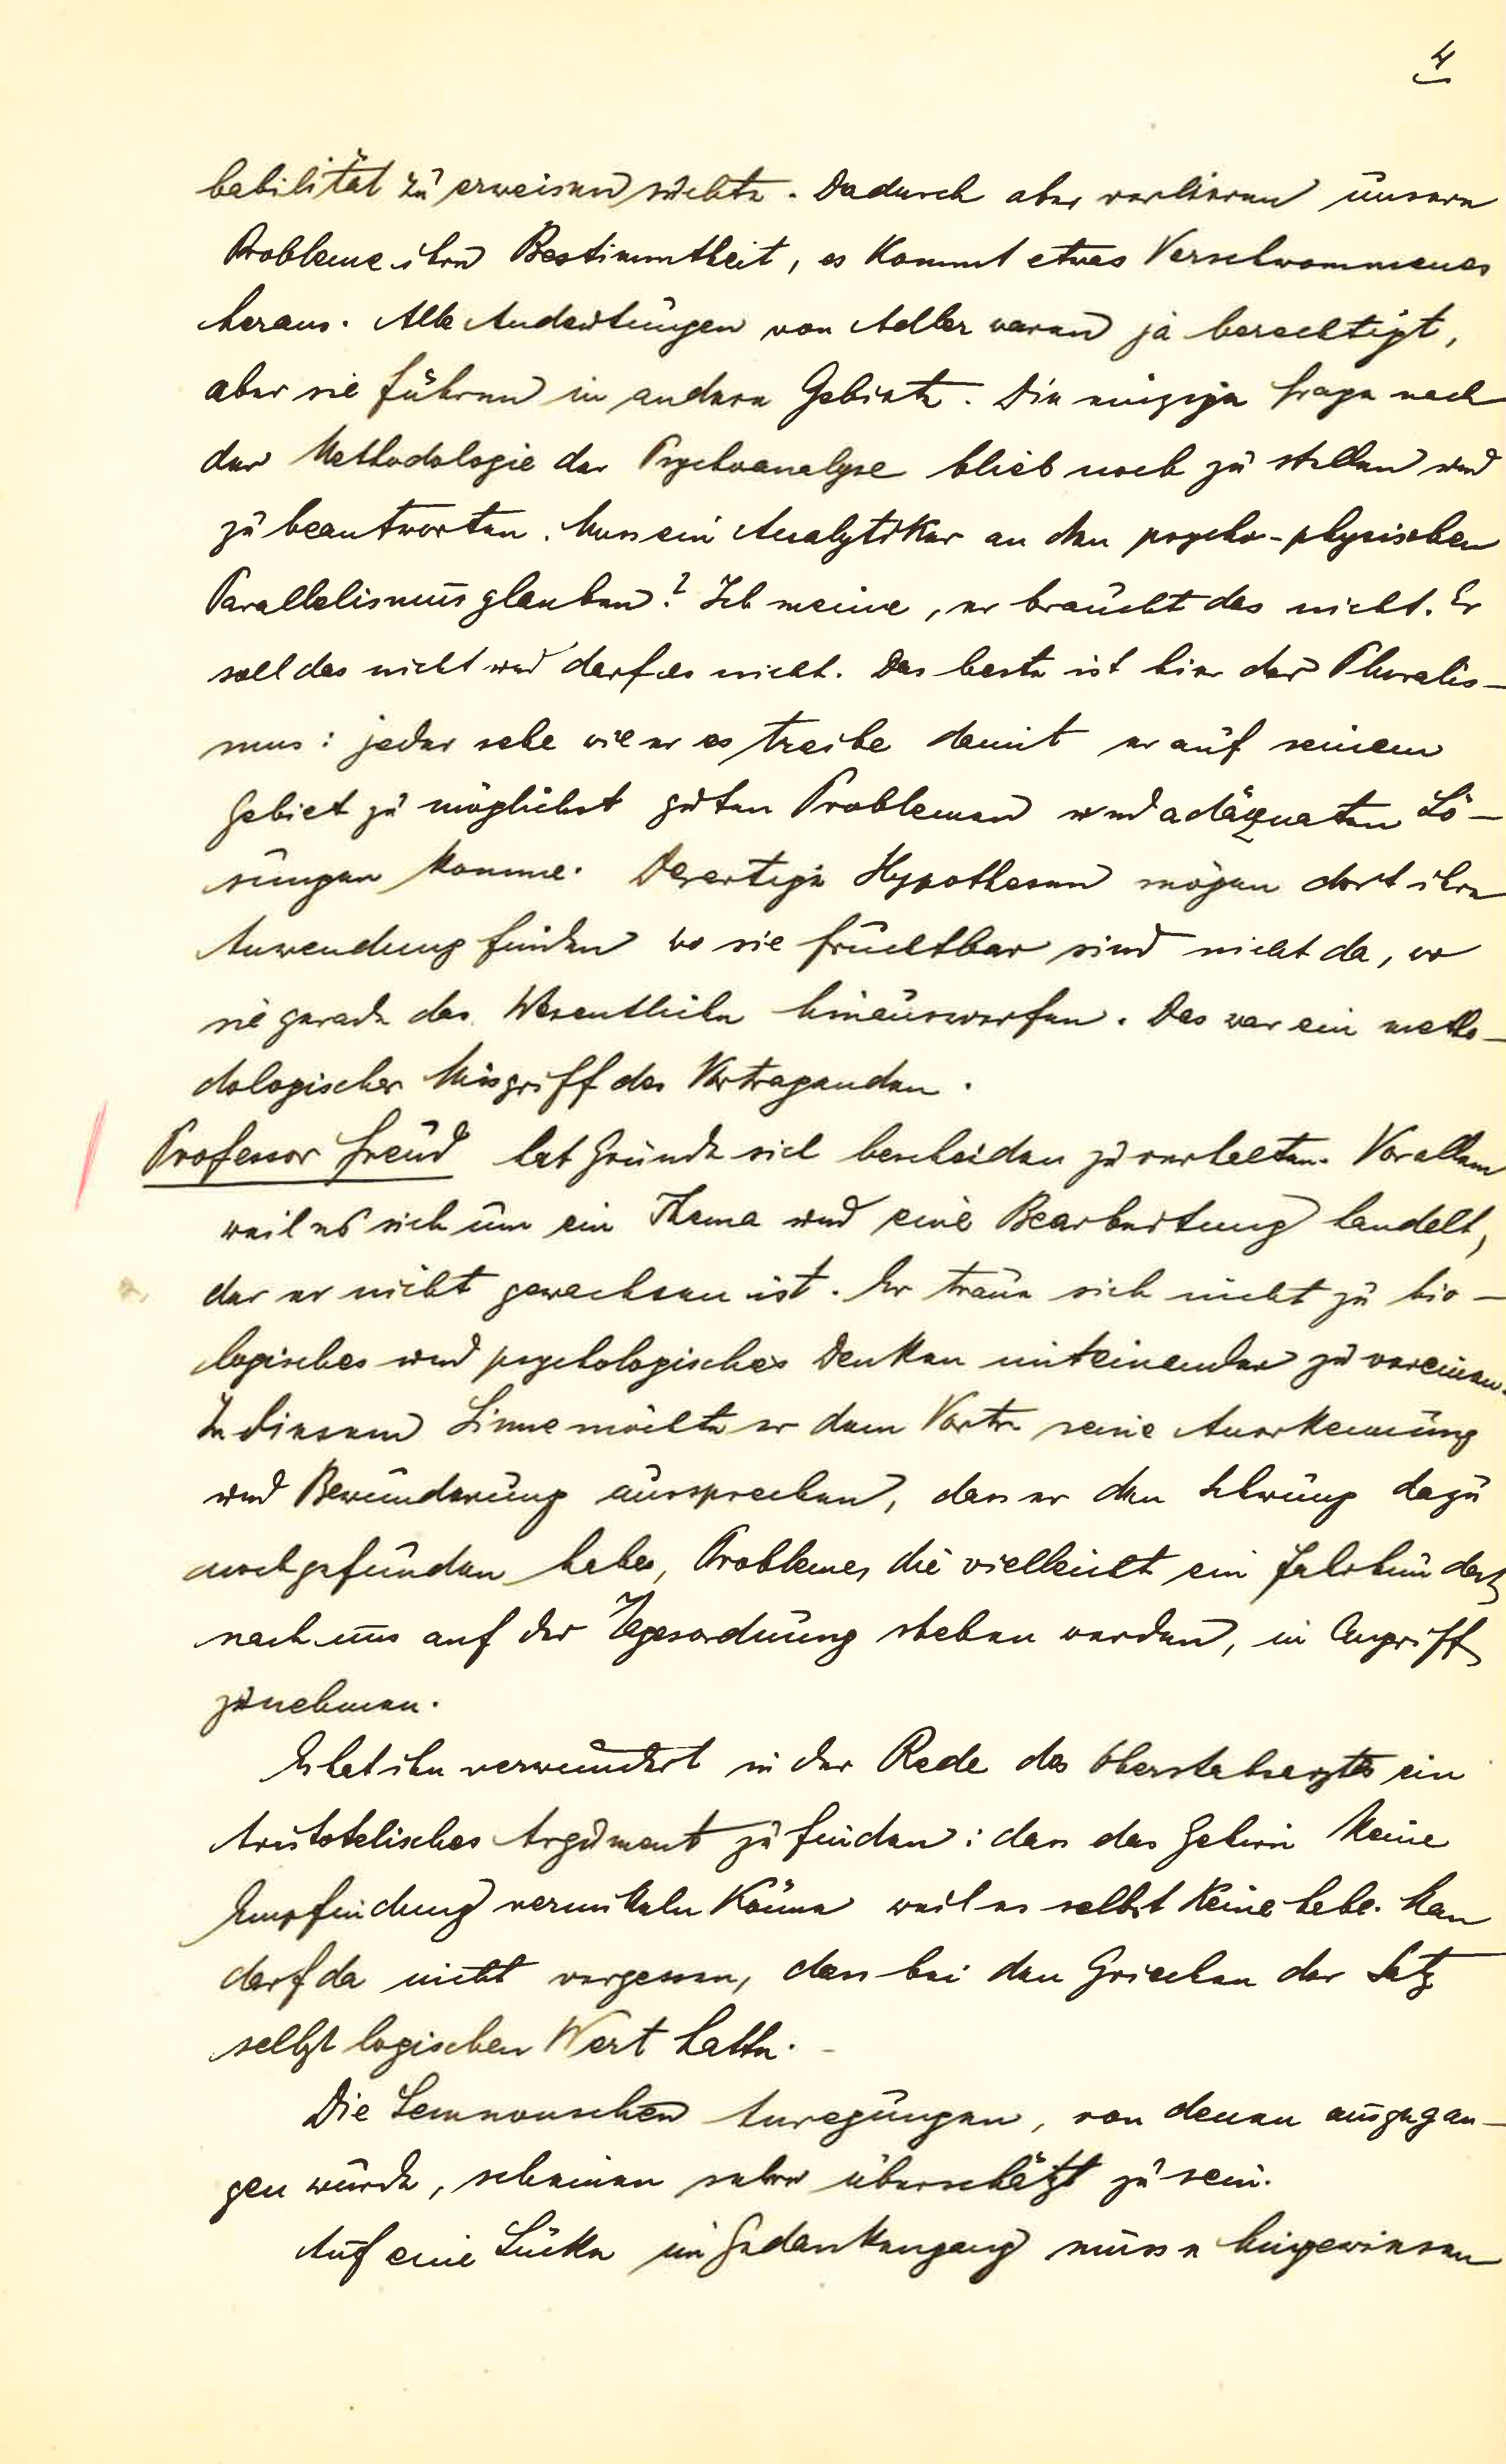 4
babilität zu erweisen suchte. Dadurch aber verlieren unsere
Probleme ihre Bestimmtheit, es kommt etwas Verschwommenes
heraus. Alle Andeutungen von Adler waren ja berechtigt,
aber sie führen in andere Gebiete. Die einzige Frage nach
der Methodologie der Psychoanalyse blieb noch zu stellen und
zu beantworten. Muss ein Analytiker an den psycho-physischen
Parallelismus glauben? Ich meine, er braucht das nicht. Er
soll das nicht und darf es nicht. Das beste ist hier der Pluralis-
mus: jeder sehe wie er es treibe damit er auf seinem
Gebiet zu möglichst guten Problemen und adäquaten Lö-
sungen komme. Derartige Hypothesen mögen dort ihre
Anwendung finden wo sie fruchtbar sind nicht da, wo
sie gerade das Wesentliche hinauswerfen. Das war ein metho-
dologischer Misgriff des Vortragenden.
Professor Freud hat Gründe sich bescheiden zu verhalten. Vor allem
weil es sich um ein Thema und eine Bearbeitung handelt,
der er nicht gewachsen ist. Er traue sich nicht zu bio-
logisches und psychologisches Denken miteinander zu vereinen.
In diesem Sinne möchte er dem Vortr. seine Anerkennung
und Bewunderung aussprechen, dass er den Schwung dazu
noch gefunden habe, Probleme, die vielleicht ein Jahrhundert
nach uns auf der Tagesordnung stehen werden, in Angriff
zu nehmen.
Es hat ihn verwundert in der Rede des Oberstabsarztes ein
Aristotelisches Argument zu finden: dass das Gehirn keine
Empfindung vermitteln könne weil es selbst keine habe. Man
darf da nicht vergessen, dass bei den Griechen der Satz
selbst logischen Wert hatte. -
Die Semnonschen Anregungen, von denen ausgegan-
gen wurde, scheinen sehr überschätzt zu sein.
Auf eine Lücke im Gedankengang müsse hingewiesen